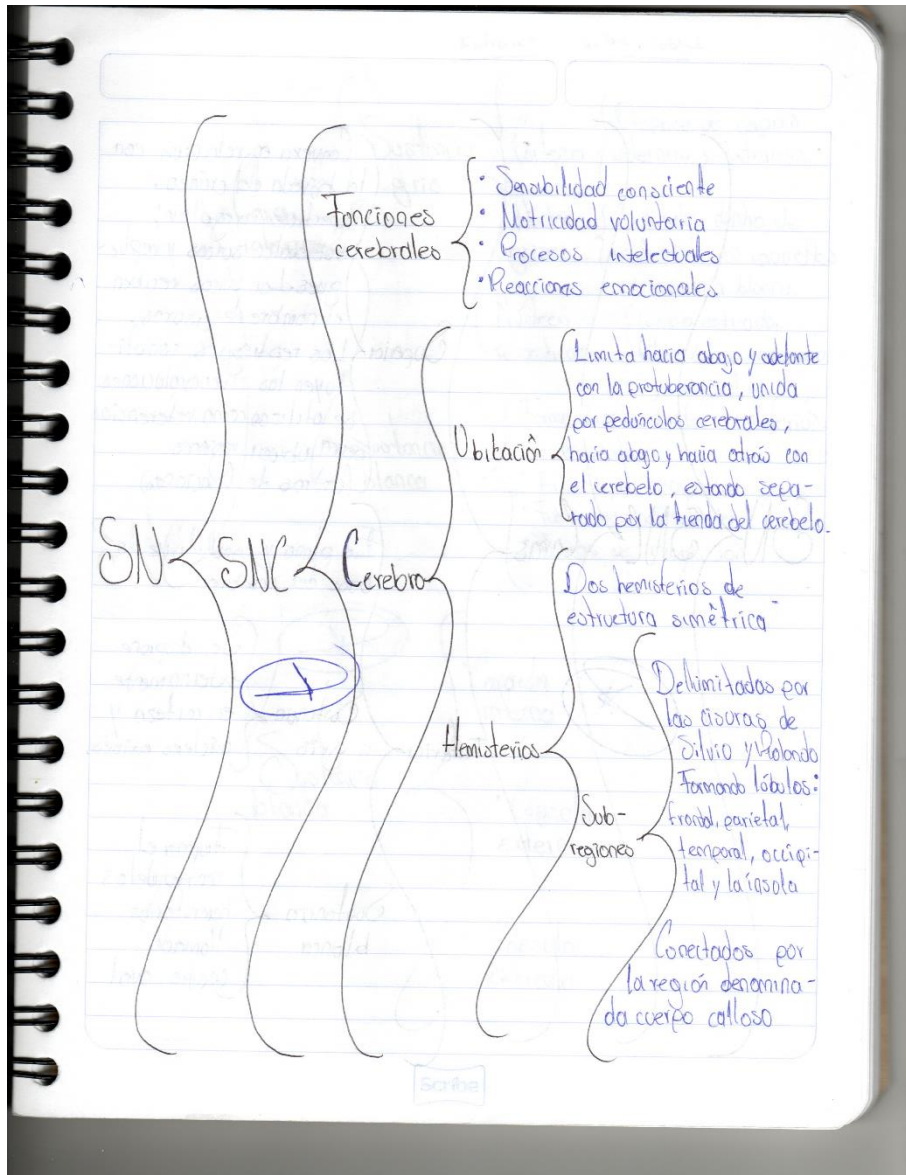 Funciones
cerebrales
• Sensibilidad consciente
• Motricidad voluntaria
• Procesos intelectuales
• Reacciones emocionales
SN
SNC
Cerebro
Ubicación
Limita hacia abajo y adelante
con la protuberancia, unida
por pedúnculos cerebrales,
hacia abajo y hacia atrás con
el cerebelo, estando sepa-
rado por la tienda del cerebelo.
Hemisferios
Dos hemisferios de
estructura simétrica
Sub-
regiones
Delimitados por
las cisuras de
Silvio y Rolando
Formando lóbulos:
frontal, parietal,
temporal, occipi-
tal y la ínsula
Conectados por
la región denomina-
da cuerpo calloso
1
Scribe